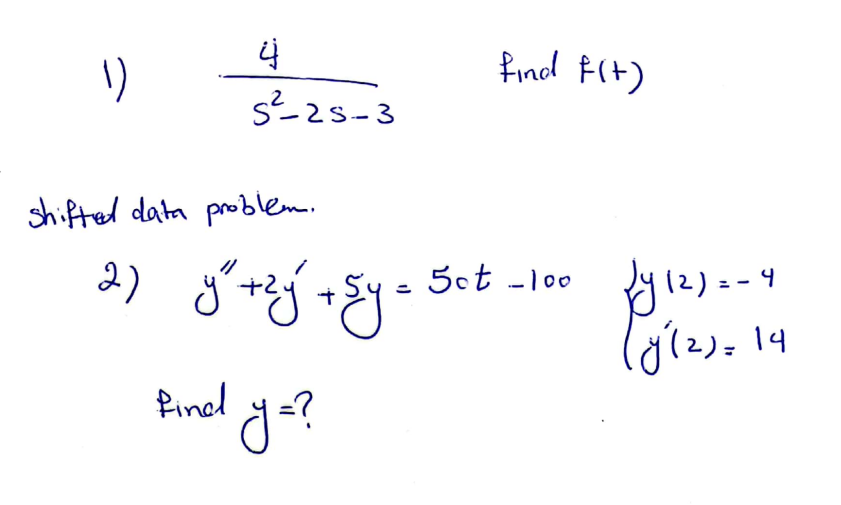 1) 4 / s²-2s-3 find f(t)
shifted data problem.
2) y''+2y'+5y = 50t -100 { y(2) = -4
y'(2) = 14
find y=?